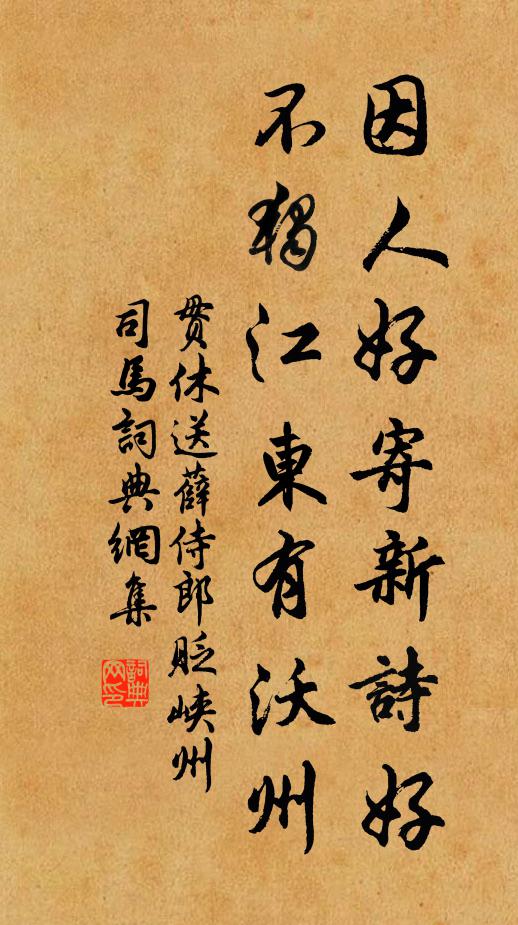 因人好寄新詩好
不獨江東有沃州
貫休送薛侍郎貶峽州
司馬詞典網集
詞典網印